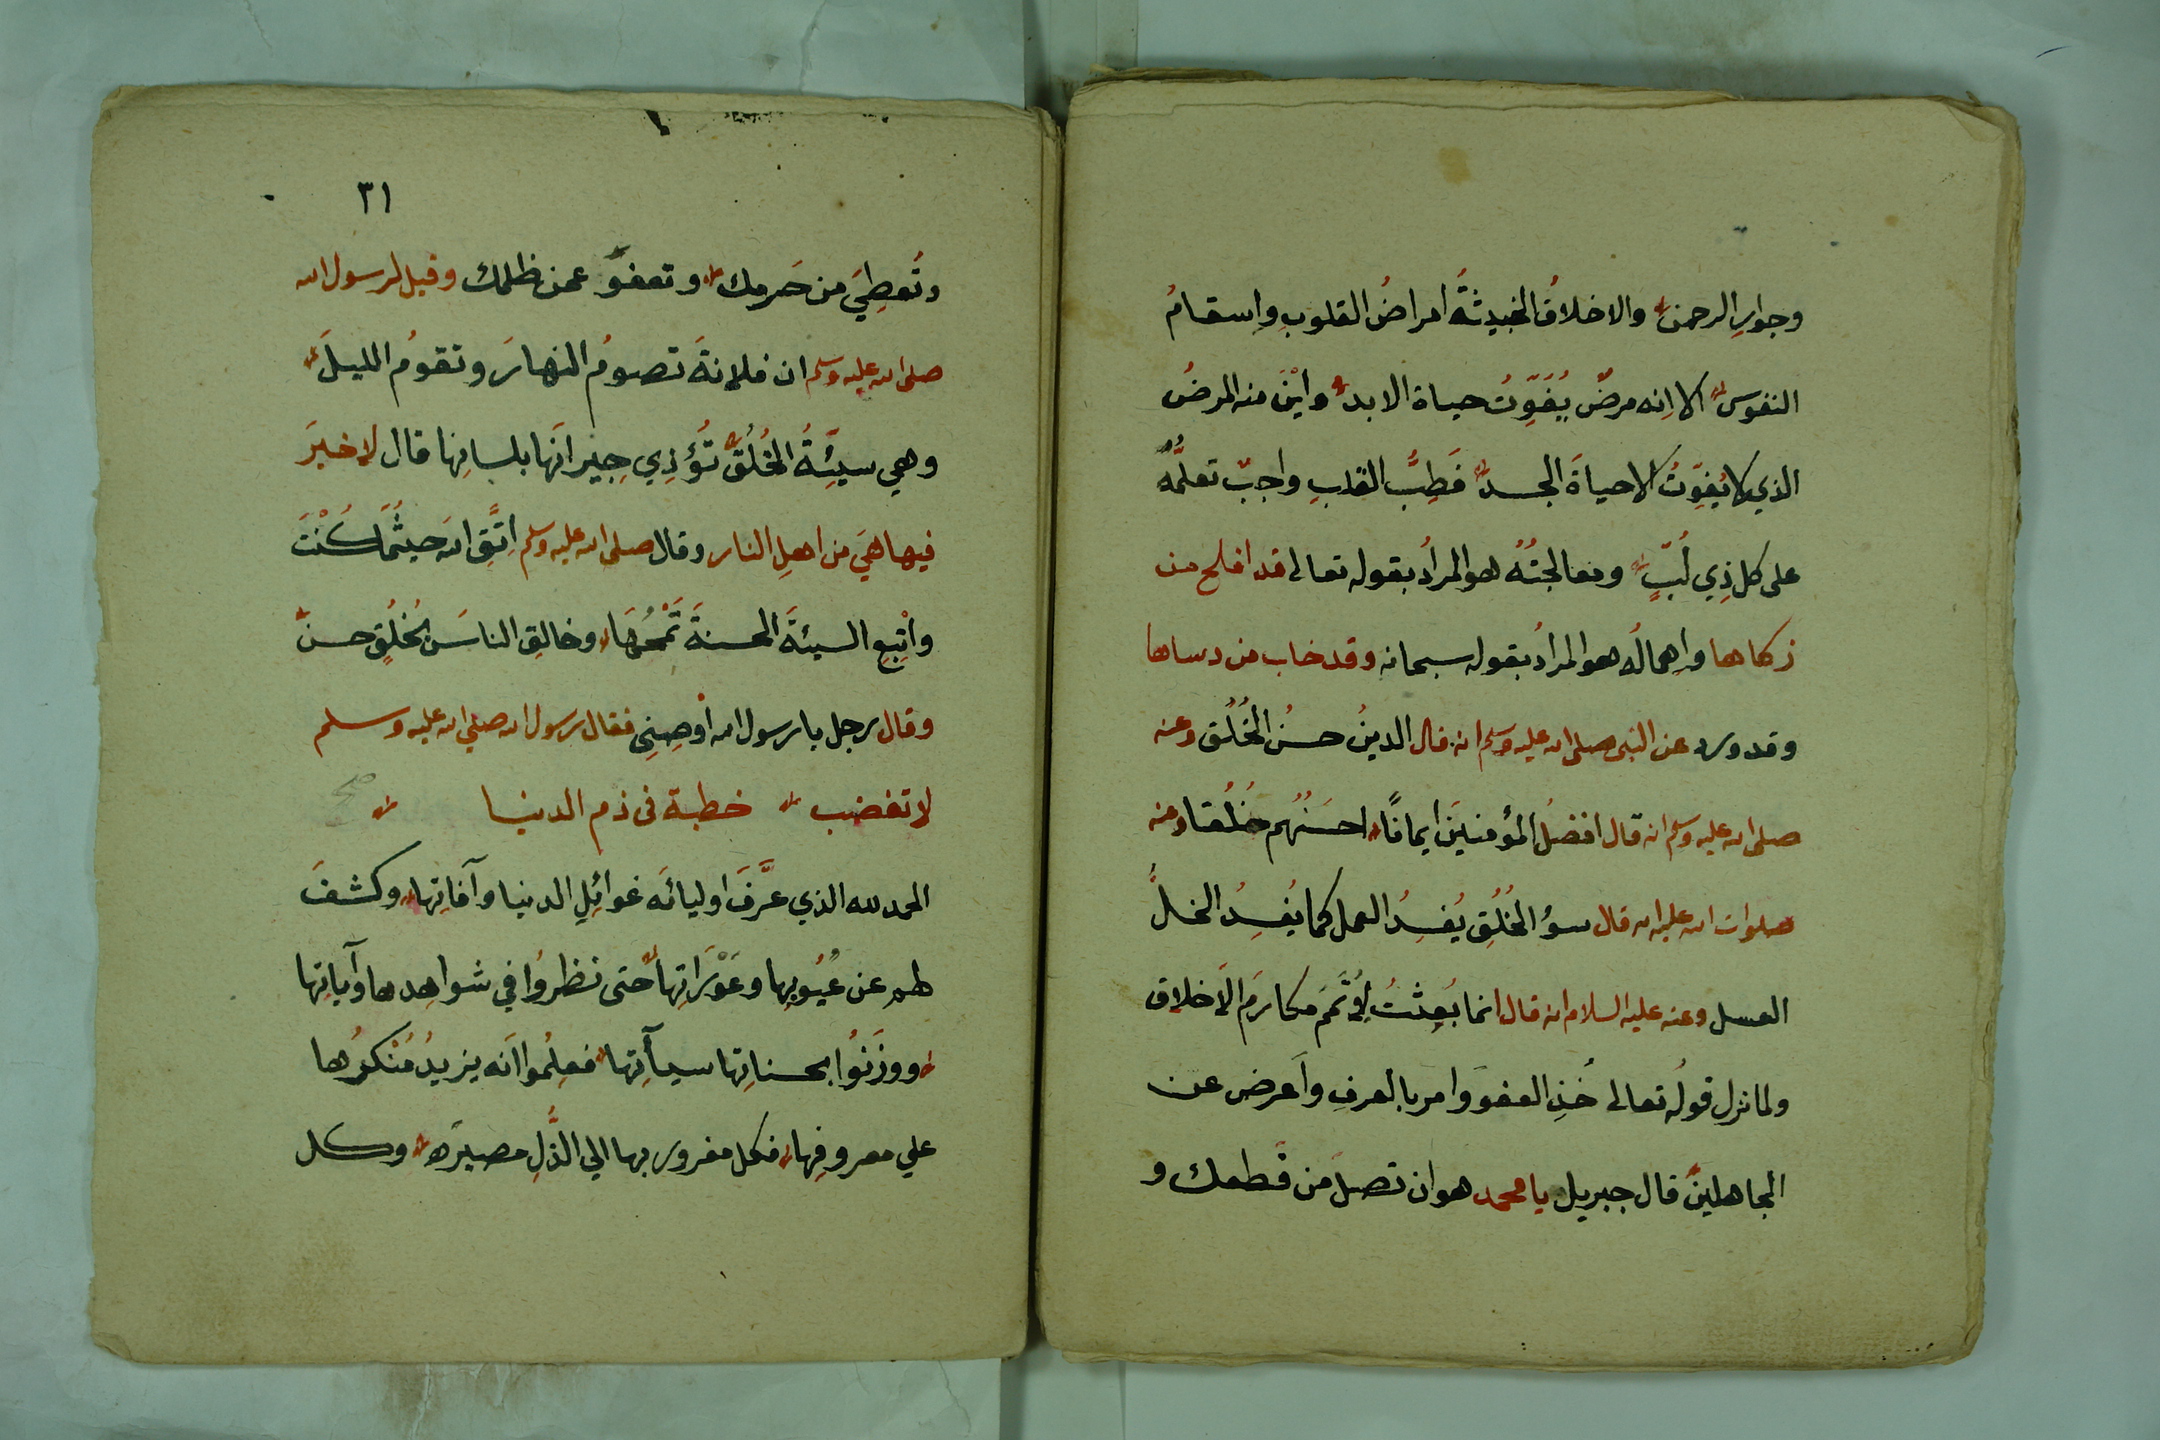 وجوار الرحمن والاخلاقُ الخبيثةُ امراضُ القلوبِ واسقامُ
النفوس الا انه مرضٌ يُفَوِّتُ حياة الابد واَيْنَ منه المرضُ
الذي لا يُفَوِّتُ الاحياةَ الجسد فَطِبُّ القلبِ واجبٌ تعلمُهُ
على كل ذِي لُبٍّ ومعالجتُهُ هو المرادُ بقوله تعالى قد افلح من
زكاها واِهمالُه هو المرادُ بقوله سبحانه وقد خاب من دساها
وقد ورد عن النبى صلى الله عليه وسلم انه قال الدينُ حسنُ الخُلُق وعنه
صلى الله عليه وسلم انه قال افضلُ المؤمنينَ ايمانًا احسَنُهُم خُلُقا وعنه
صلوات الله عليه انه قال سوُ الخُلُقِ يُفسِدُ العمل كما يُفسِدُ الخلُّ
العسل وعنه عليه السلام انه قال انما بُعِثتُ لِاُتَمِّمَ مكارمَ الَاخلاق
ولما نزل قولُه تعالى خُذِ العفوَ وامر بالعرفِ واَعرض عن
الجاهلينَ قال جبريل يا محمد هو ان تصلَ من قَطعك و
٣١
وتُعطِيَ من حَرمك وتعفوَ عمن ظلمك وقيل لرسول الله
صلى الله عليه وسلم ان فلانةَ تصومُ النهارَ وتقومُ الليلَ
وهي سيئةُ الخُلُقِ تُؤذِي جِيرانَها بلسانِها قال لا خيرَ
فيها هيَ من اهلِ النار وقال صلى الله عليه وسلم اِتَّقِ الله حيثُمَا كُنْتَ
واَتبِعِ السيئةَ الحسنةَ تَمْحُهَا وخالِقِ الناسَ بخُلُقٍ حسنٍ
وقال رجل يا رسول الله اَوْصِنِى فقال رسول الله صلي الله عليه وسلم
لا تغضب خطبة فى ذم الدنيا صح
الحمد لله الذي عَرَّفَ اوليائَه غوائِلِ الدنيا وآفاتِها وكشفَ
لهم عن عُيُوبِها وعَوْرَاتِها حتى نظرُوا في شواهِدها وآياتِها
ووزَنُوا بحسناتِها سيآتِها فعلِمُوا اَنه يزيدُ مُنْكَرُها
علي معروفِها فكل مغرور بها الي الذُّلِ مصيرَه وكل